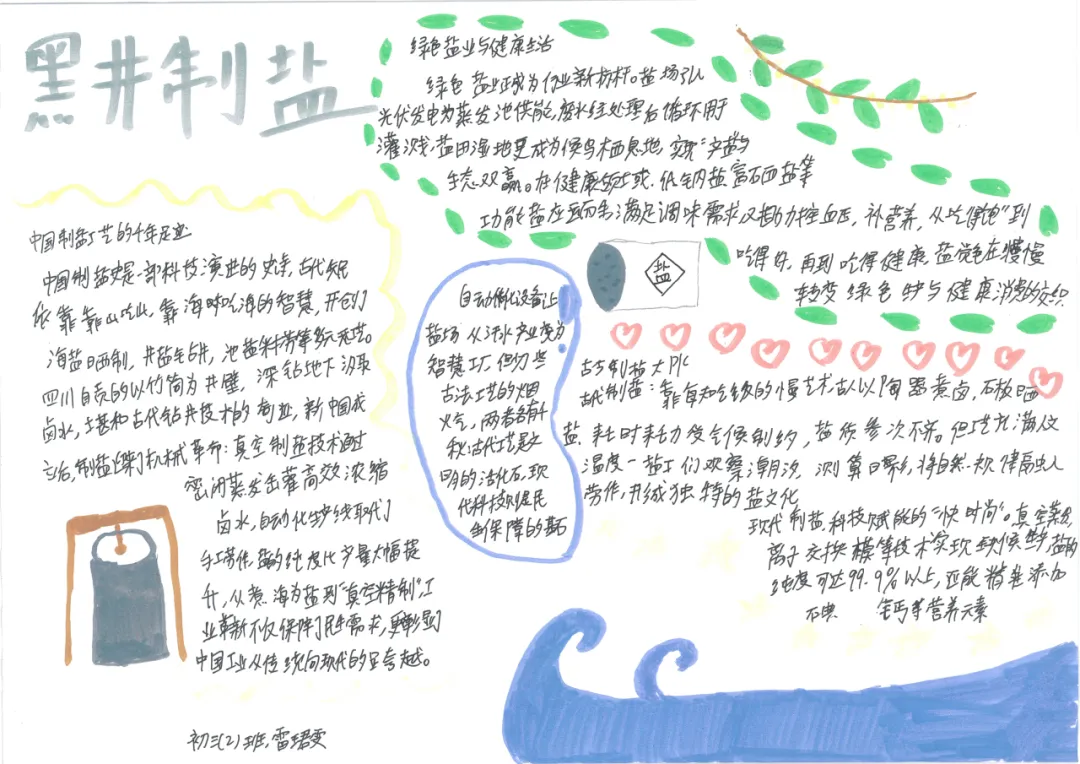 黑井制盐
绿色盐业与健康生活
绿色盐业正成为行业新标杆。盐场引入
光伏发电为蒸发池供能，废水经处理后循环用于
灌溉；盐田湿地更成为候鸟栖息地，实现"产盐与
生态双赢。在健康领域，低钠盐富硒盐等
功能盐应运而生满足调味需求又助力控血压，补营养，从吃得饱"到
吃得好，再到吃得健康，盐觉色在慢慢
转变 绿色 与健康消费的交织
盐
中国制盐工艺的千年足迹
中国制盐史是一部科技演进的史诗，古代先民
依靠靠山吃山，靠海吃海的智慧，开创了
海盐日晒制，井盐钻井，池盐捞等多元工艺。
四川自贡的以竹筒为井壁，深钻地下汲取
卤水，堪称古代钻井技术的奇迹，新中国成
立后，制盐迎来了机械革命：真空制盐技术通过
密闭蒸发罐高效浓缩
卤水，自动化生产线取代了
手工劳作，盐的纯度化产量大幅提
升，从煮海为盐到"真空精制"，工
业革新不仅保障了民生需求，更彰显了
中国工业从传统向现代的跨越。
自动化设备让
盐场从汗水产业变为
智慧工厂 但仍些
古法工艺的烟
火气，两者各有千
秋：古代工艺是文
明的活化石，现
代科技则是民
生保障的基石
古与制盐大PK
古代制盐：靠自知给的慢艺术古人以陶器煮卤，石板晒
盐，耗时耗力受气候制约，盐质参次不齐。但工艺充满人文
温度一盐工们观察潮汐，测算日曝，将自然规律融入
劳作，形成独特的盐文化
现代制盐，科技赋能的"快时尚"。真空蒸发，
离子交换膜等技术实现全候生产，盐的
纯度可达99.9%以上，还能精准添加
碘 钙等营养元素
初三(2)班，雷珺雯